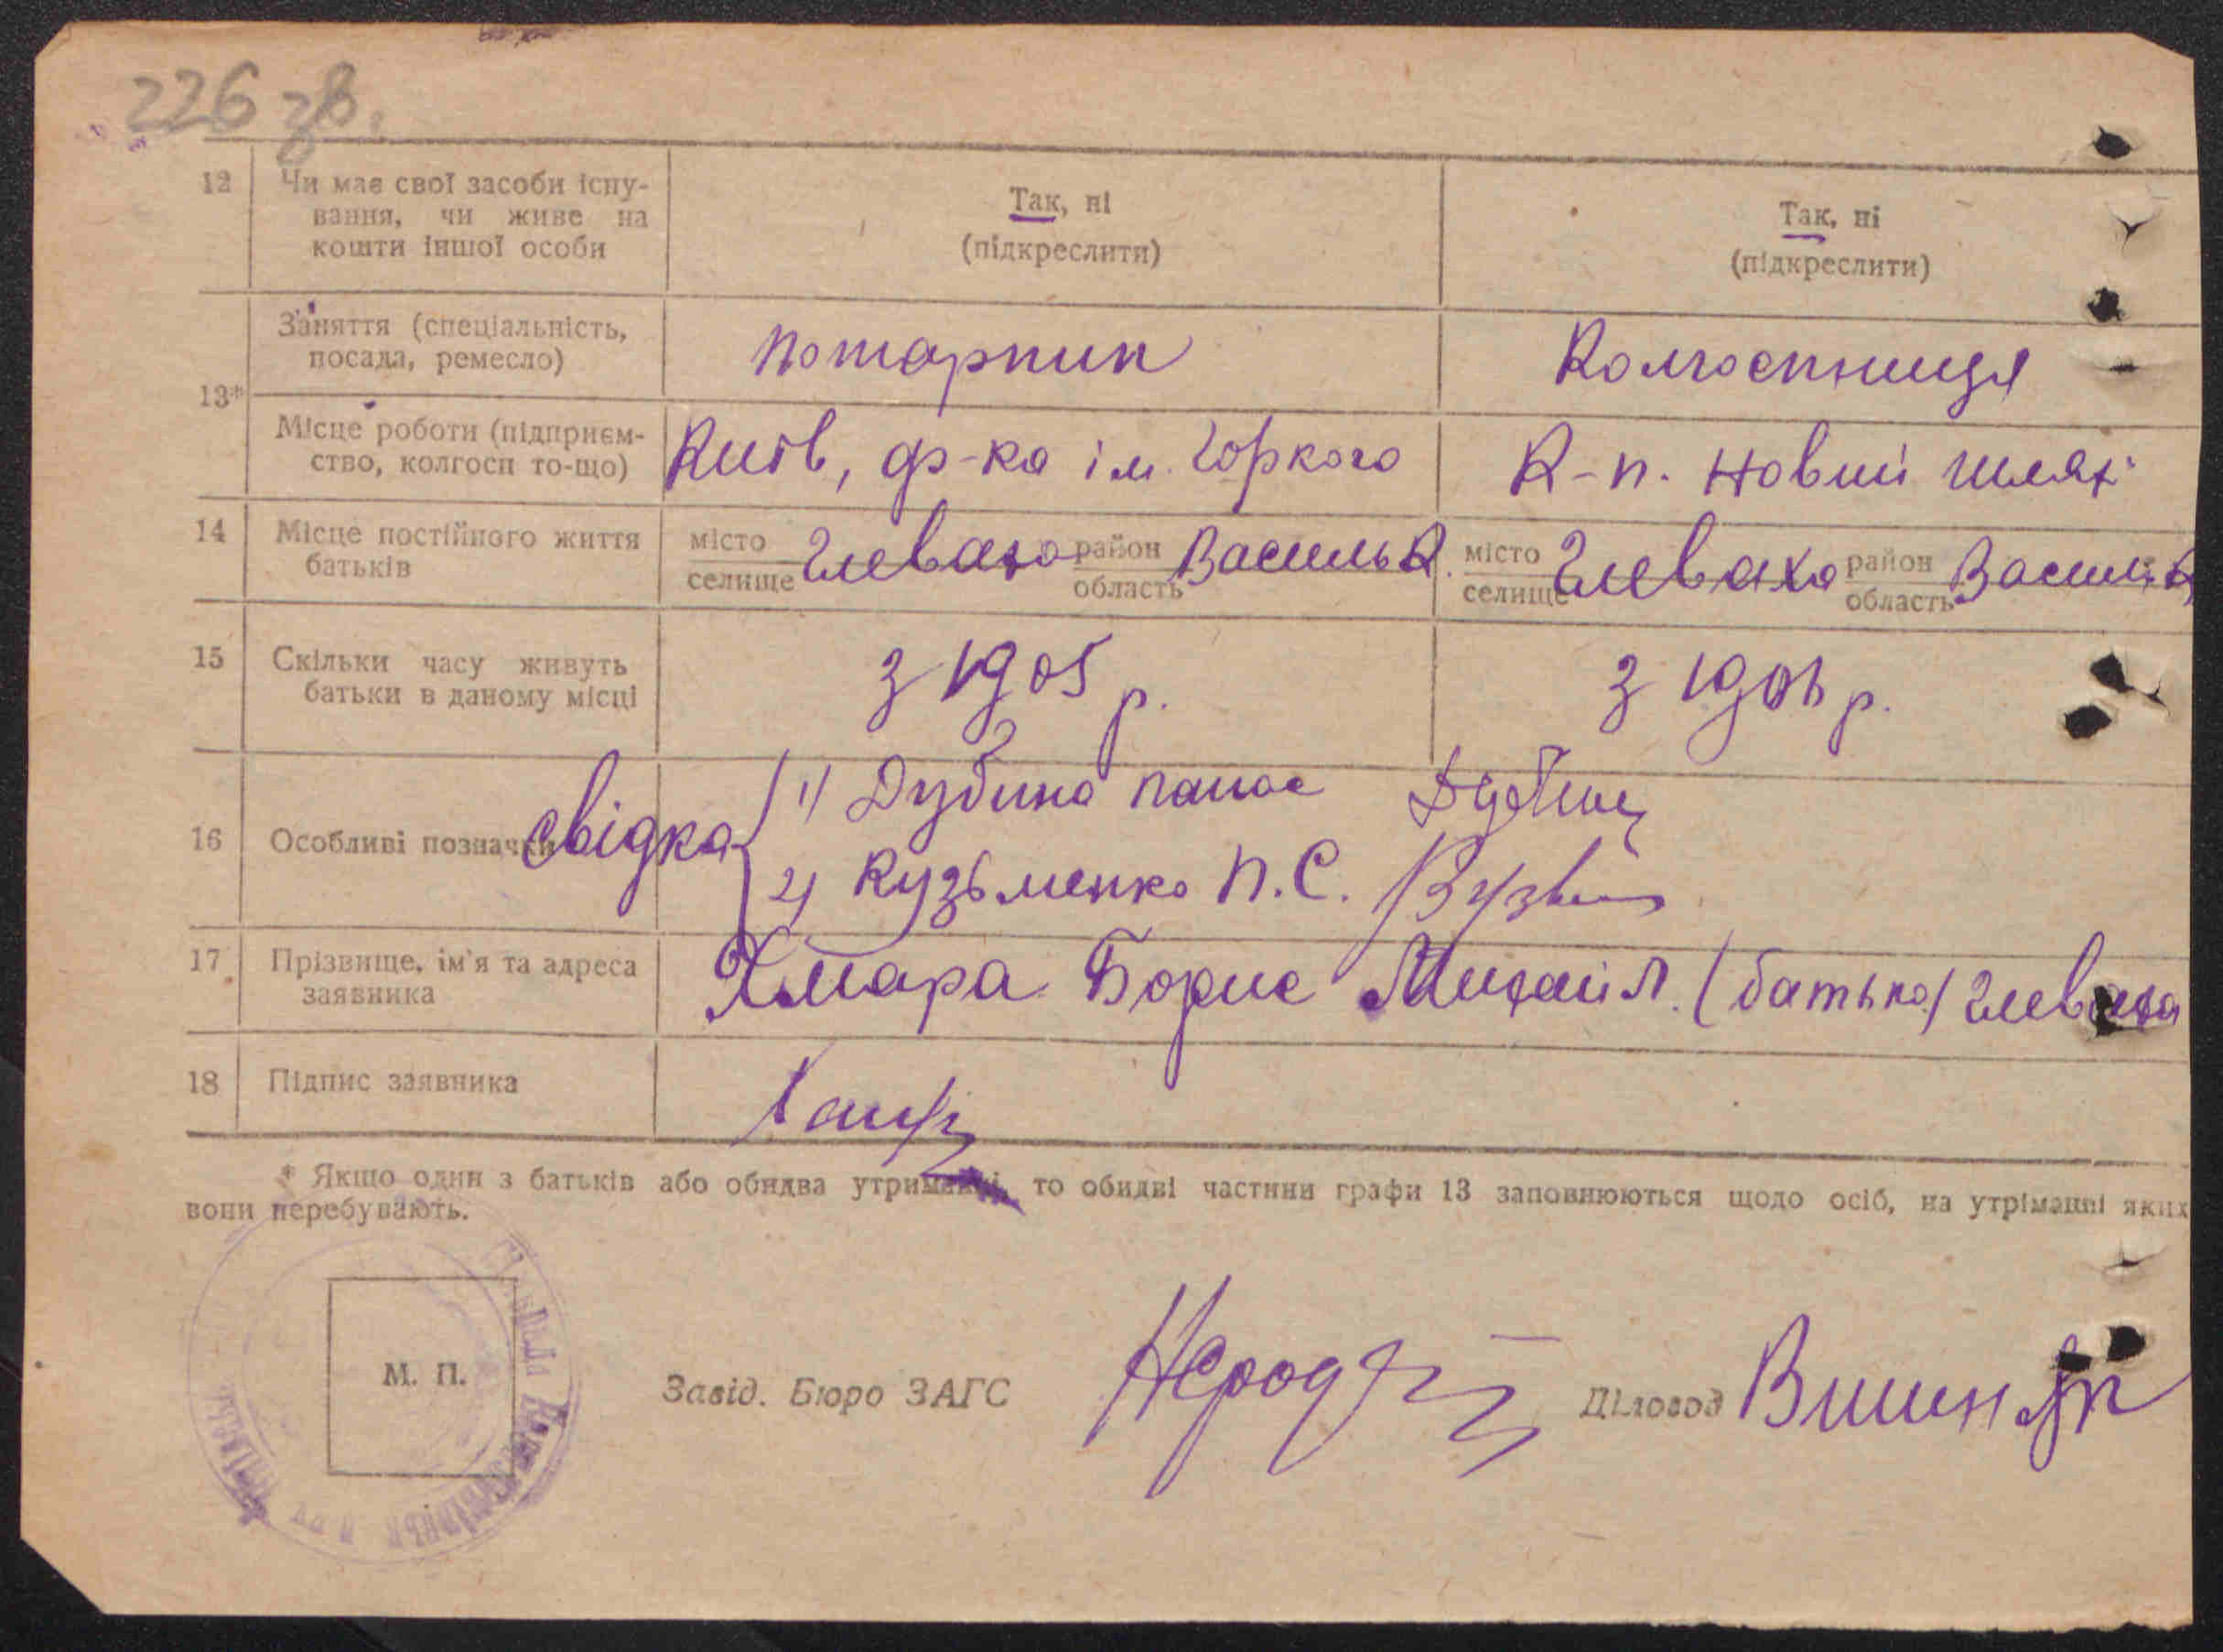 226 зв.
12 Чи має свої засоби існу-
вання, чи живе на
кошти іншої особи
Так, ні
(підкреслити)
Так, ні
(підкреслити)
13*
Заняття (спеціальність,
посада, ремесло)
Колгоспниця
Місце роботи (підприєм-
ство, колгосп то-що)
Київ, ф-ка ім. Горкого
К-п. Новий шлях
14 Місце постійного життя
батьків
місто Глеваха район Васильк.
селище область
місто Глеваха район Васильк
селище область
15 Скільки часу живуть
батьки в даному місці
з 1905 р.
з 190 р.
16 Особливі позначки свідка
1) Дубина Панас
2) Кузьменко П.С.
17 Прізвище, ім'я та адреса
заявника
Хмара Борис Михайл. (батько) Глеваха
18 Підпис заявника
* Якщо один з батьків або обидва утриманці, то обидві частини графи 13 заповнюються щодо осіб, на утріманні яких
вони перебувають.
М. П.
Завід. Бюро ЗАГС
Діловод